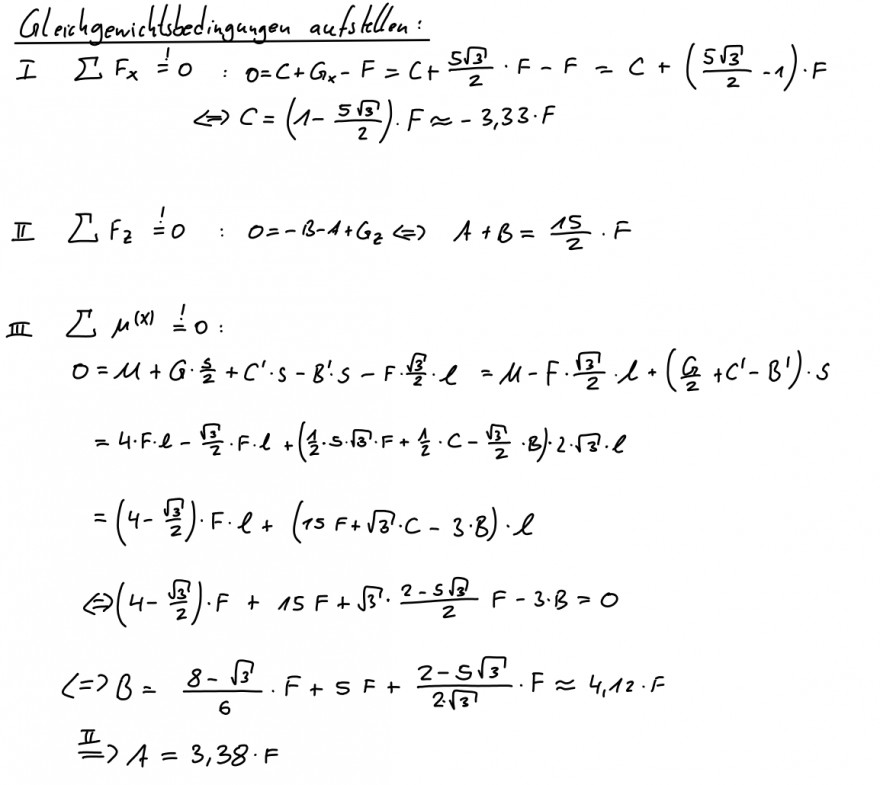 Gleichgewichtsbedingungen aufstellen:
I ∑ Fx =! 0 : 0=C+Gx-F = C+ 5√3/2 · F - F = C + (5√3/2 - 1)·F
<=> C = (1- 5√3/2)·F ≈ - 3,33·F
II ∑ Fz =! 0 : 0=-B-A+Gz <=> A+B = 15/2 · F
III ∑ M^(x) =! 0 :
0 = M + G·s/2 + C'·s - B'·s - F·√3/2·l = M - F·√3/2·l + (G/2 + C' - B')·s
= 4·F·l - √3/2·F·l + (1/2·5·√3·F + 1/2·C - √3/2·B)·2·√3·l
= (4-√3/2)·F·l + (15 F + √3·C - 3·B)·l
<=> (4-√3/2)·F + 15 F + √3· (2-5√3)/2 F - 3·B = 0
<=> B = (8-√3)/6 · F + 5 F + (2-5√3)/(2·√3) · F ≈ 4,12·F
II => A = 3,38·F